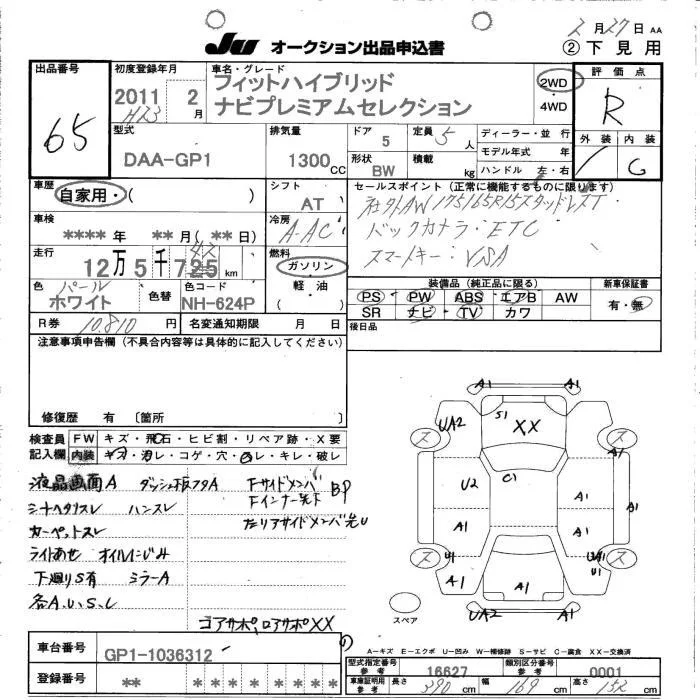 2月27日 AA
JU オークション出品申込書
② 下見用
出品番号
65
初度登録年月
2011 2月
H23
車名・グレード
フィットハイブリッド
ナビプレミアムセレクション
2WD
・
4WD
評価点
R
外装 内装
G
型式
DAA-GP1
排気量
1300CC
ドア 5
形状 BW
定員 5人
積載 kg
ディーラー・並行
モデル年式 年
ハンドル 左・右
車歴
自家用・( )
シフト
AT
セールスポイント(正常に機能するものに限ります)
社外AW 175/65R15スタッドレスT
バックカメラ・ETC
スマートキー・VSA
車検
**** 年 ** 月( ** 日)
冷房
A-AC
走行
12万5千725km
燃料
ガソリン
・
軽油
( )
色 パール
ホワイト
色替
色コード
NH-624P
装備品(純正品に限る)
PS PW ABS エアB AW
SR ナビ TV カワ
新車保証書
有・無
R券 10,810円
名変通知期限 月 日
後日品
注意事項申告欄(不具合内容等は具体的に記入してください)
修復歴 有 〔箇所 〕
検査員
記入欄
FW キズ・飛石・ヒビ割・リペア跡・X要
内装 キズ・汚レ・コゲ・穴・スレ・キレ・破レ
液晶画面A ダッシュ板フタA
シートヘタリスレ ハンスレ
カーペットスレ
ライトあせ オイルにじみ
下廻りS有 ミラーA
各A.U.S.C
Fサイドメンバ
Fインナー先下
BP
左リアサイドメンバ先U
コアサポ,ロアサポXX
A1 A1
UA2
S1
XX
ス ス
A1
U2
C1
A1
A1
A1
U1
A1
U1
ス ス
A1
A1
A1
UA2
A1
スペア
A-キズ E-エクボ U-凹み W-補修跡 S-サビ C-腐食 XX-交換済
車台番号
GP1-1036312
登録番号
** * ** * * * *
型式指定番号
参考
16627
類別区分番号
参考
0001
車庫証明用
参考
長さ 390cm
幅 169cm
高さ 152cm